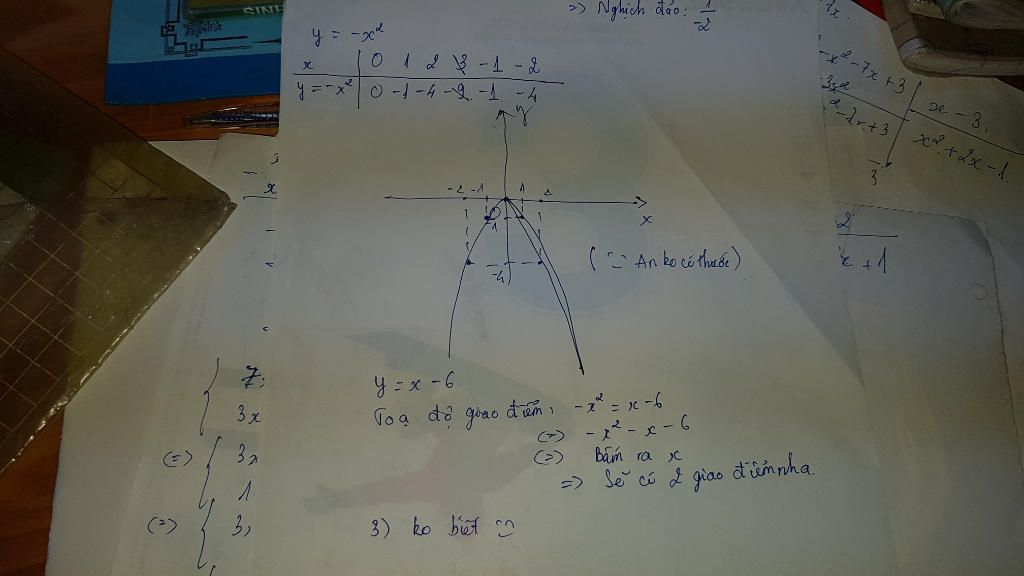 => Nghịch đảo: 1/-2
y = -x²
x | 0 1 2 3 -1 -2
y = -x² | 0 -1 -4 -9 -1 -4
y
-2 -1 1 2
x
O
-1
-4
( An ko có thước)
y = x - 6
Toạ độ giao điểm: -x² = x - 6
(=) -x² - x - 6
(=) Bấm ra x
=> Sẽ có 2 giao điểm nha.
3) ko biết
7:
3x
(=) 3x
1
(=) 3x
-x² - 7x + 3
-2x + 3
x - 3
x² + 2x - 1
3
2
x + 1